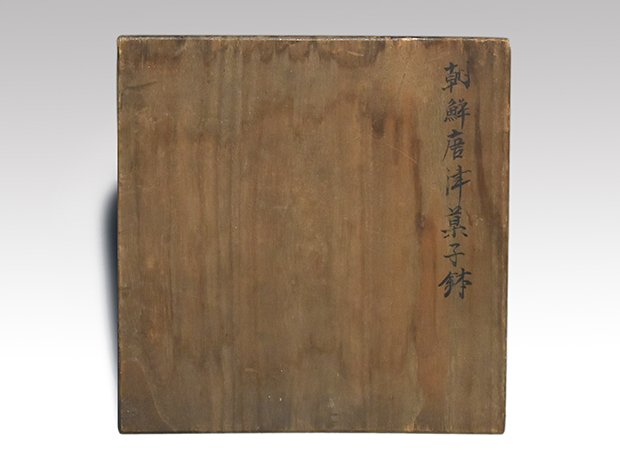 朝鮮唐津菓子鉢